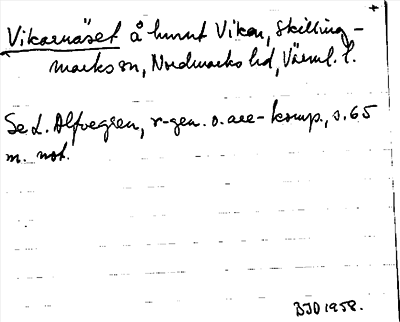 Vikarnäset å hmnt Vikan, Skilling-
marks sn, Nordmarks hd, Värml. l.
Se L. Alfvegren, r-gen. o. are-komp., s. 65
m. not.
BJD 1958.